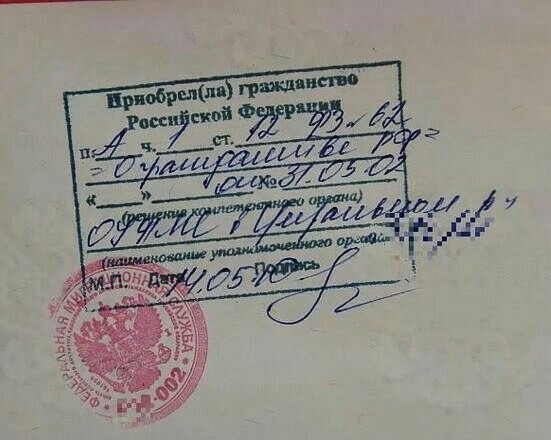 Приобрел(ла) гражданство
Российской Федерации
п. А ч. 1 ст. 12 ФЗ № 62
"О гражданстве РФ"
« » № от 31.05.02
(решение компетентного органа)
ОУФМС в Центральном р-
(наименование уполномоченного органа)
М.П. Дата 14.05. Подпись
ФЕДЕРАЛЬНАЯ МИГРАЦИОННАЯ СЛУЖБА
-002